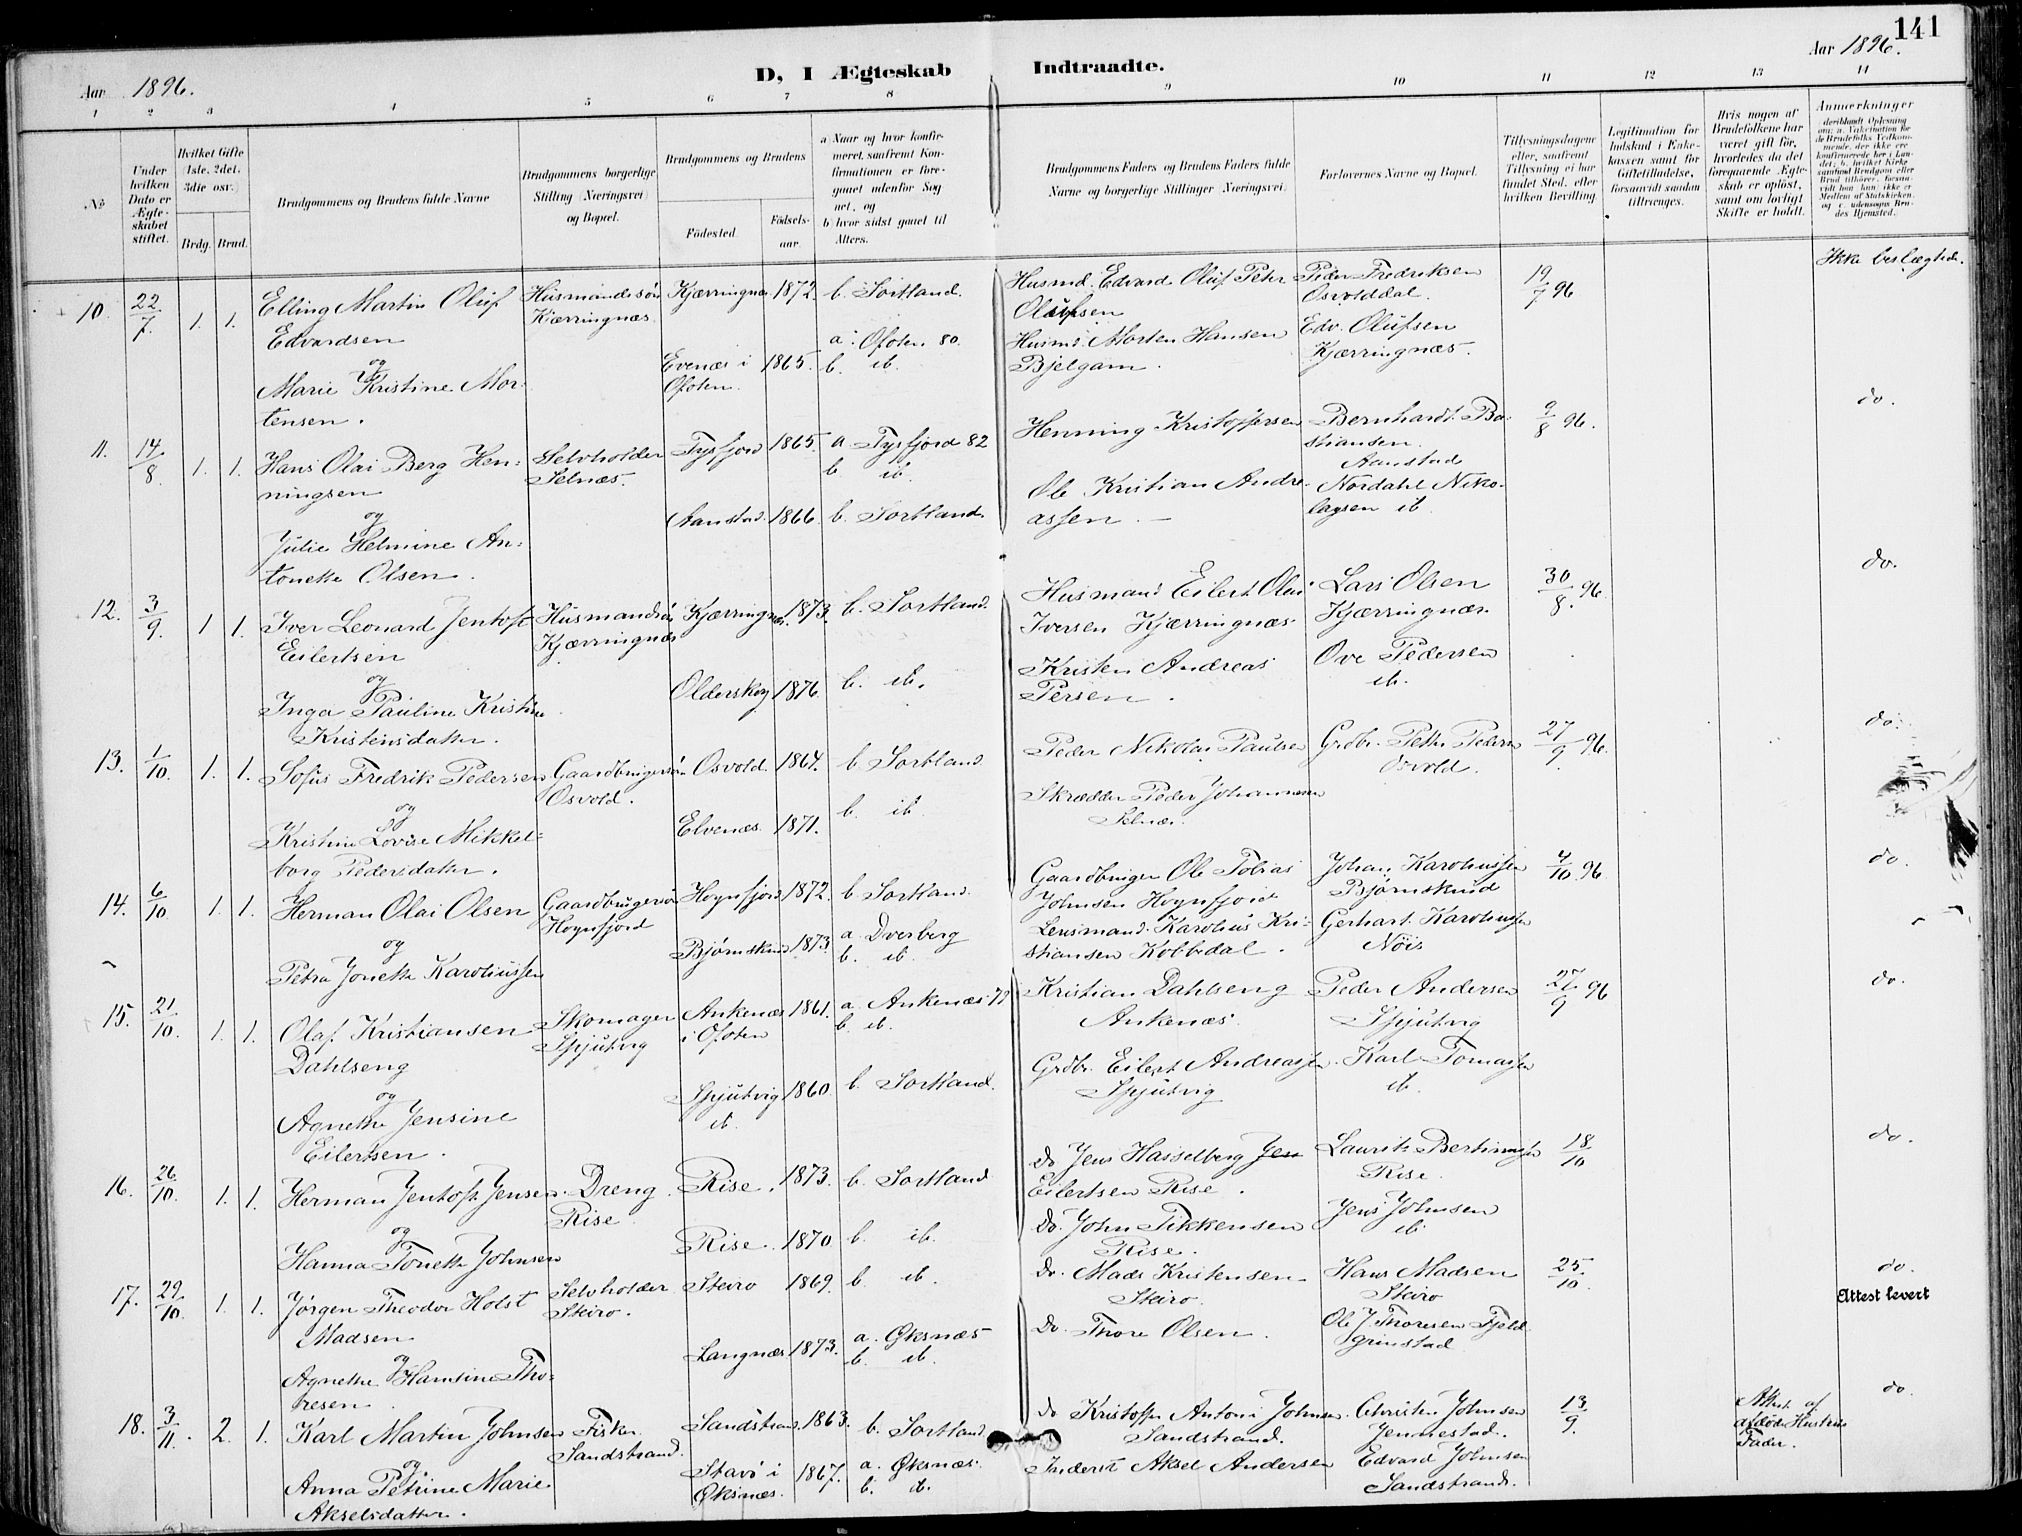 141
Aar 1896.
D, I Ægteskab Indtraadte.
Aar 1896.
1 2 3 4 5 6 7 8 9 10 11 12 13 14
No
Under hvilken Dato er Ægteskabet stiftet.
Hvilket Gifte (1ste, 2det, 3die osv.)
Brdg. Brud.
Brudgommens og Brudens fulde Navne
Brudgommens borgerlige Stilling (Næringsvei) og Bopæl.
Brudgommens og Brudens
Fødested.
Fødselsaar.
a) Naar og hvor konfirmeret, saafremt Konfirmationen er foregaaet udenfor Sognet, og
b) hvor sidst gaaet til Alters.
Brudgommens Faders og Brudens Faders fulde Navne og borgerlige Stillinger (Næringsvei).
Forlovernes Navne og Bopæl.
Tillysningsdagene eller, saafremt Tillysning ei har fundet Sted, efter hvilken Bevilling.
Legitimation for Indskud i Enkekassen samt for Giftetilladelse, forsaavidt saadan tiltrænges.
Hvis nogen af Brudefolkene har været gift før, hvorledes da det foregaaende Ægteskab er opløst, samt om lovligt Skifte er holdt.
Anmerkninger
10. 22/7 1. 1. Elling Martin Oluf Edvardsen
og
Marie Kristine Mortensen.
Husmandssøn Kjærringnæs
Kjærringnæs 1872. b. Sortland.
Evenæs i Ofoten. 1865. a. Ofoten 80. b. ib.
Husmd. Edvard Oluf Peter Olufsen
Husmd. Morten Hansen Bjelgam.
Peder Fredriksen Osvolddal.
Edv. Olufsen Kjærringnæs.
19/7 96
Ikke beslægtede.
11. 14/8. 1. 1. Hans Olai Berg Henningsen
og
Julie Helmine Antonette Olsen.
Selvholder Selnæs.
Tysfjord 1865. a. Tysfjord 82 b. ib.
Aanstad. 1866. b. Sortland.
Henning Kristoffersen
Ole Kristian Andreassen. —
Bernhardt Bastiansen. Aanstad
Nordahl Nikolaysen ib.
9/8 96.
do.
12. 3/9. 1 1. Iver Leonard Jentoft Eilertsen
og
Inga Pauline Kristine Kristensdatter.
Husmandssøn Kjærringnæs
Kjærringnæs. 1873. b. Sortland.
Olderskog 1876. b. ib.
Husmand Eilert Olai Iversen Kjærringnæs
Kristen Andreas Persen.
Lars Olsen Kjærringnæs.
Ove Pedersen ib.
30/8. 96.
do.
13. 1/10. 1. 1. Sofus Fredrik Pedersen
og
Kristine Lovise Mikkelborg Pedersdatter.
Gaardbrugersøn Osvold.
Osvold. 1864. b. Sortland
Elvenæs. 1871. b. ib.
Peder Nikolai Paulsen
Skrædder Peder Johannesen Selnæs.
Grdbr. Petter Pedersen Osvold.
27/9. 96.
do.
14. 6/10. 1. 1. Herman Olai Olsen
og
Petra Jonette Karoliussen
Gaardbrugersøn Hognfjord
Hognfjord 1872. b. Sortland.
Bjørnskind 1873. a. Dverberg b. ib.
Gaardbruger Ole Tobias Johnsen Hognfjord
Lensmand. Karolius Kristiansen Kobbedal.
Johan Karoliussen Bjørnskind
Gerhart Karoliussen Nöis
4/10. 96
do.
15. 21/10. 1. 1. Olaf Kristiansen Dahlseng
og
Agnethe Jensine Eilertsen.
Skomager Spjutvig
Ankenæs i Ofoten 1861. a. Ankenæs b. ib.
Spjutvig ib. 1860 b. Sortland.
Kristian Dahlseng Ankenæs.
Grdbr. Eilert Andreassen Spjutvig
Peder Andersen Spjutvig
Karl Tomassen ib.
27/9 96
do.
16. 26/10. 1. 1. Herman Jentoft Jensen.
og
Hanna Tonette Johnsen
Dreng Rise.
Rise. 1873. b. Sortland
Rise. 1870. b. ib.
do Jens Hasselberg Jen Eilertsen Rise.
do. John Tikkensen Rise.
Laurits Bertinussen Rise.
Jens Johnsen ib.
18/10
do.
17. 29/10. 1. 1. Jørgen Theodor Holst Madsen
og
Agnethe Hansine Thoresen.
Selvholder Steiro.
Steiro 1869. b. ib.
Langnæs 1873. a. Øksnæs b. ib.
do. Mads Kristensen Steiro.
do. Thore Olsen.
Hans Madsen Steiro
Ole J. Thoresen Fjeldgrinstad
25/10.
do.
Attest levert
18. 3/11. 2. 1. Karl Martin Johnsen
og
Anna Petrine Marie Akselsdatter.
Fisker. Sandstrand.
Sandstrand. 1863. b. Sortland
Stavö i Øksnæs. 1867. a. Øksnæs. b. ib.
do Kristoffer Antoni Johnsen Sandstrand.
Inderst Aksel Andersen
Christen Johnsen Jennestad.
Edvard Johnsen Sandstrand.
13/9.
Attest af afdøde Hustrus Fader.
do.